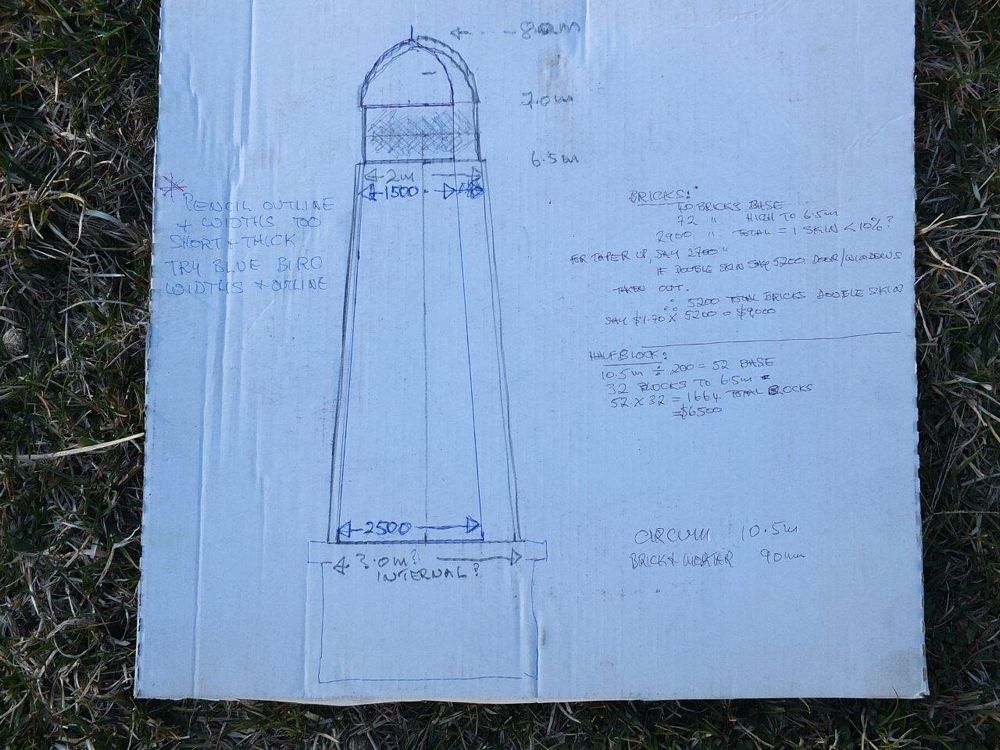 8.0m
7.0m
6.5m
2m
1500
* PENCIL OUTLINE
+ WIDTHS TOO
SHORT + THICK
TRY BLUE BIRO
WIDTHS + OUTLINE
BRICKS:
BRICKS BASE
72 " HIGH TO 6.5m
2900 " TOTAL = 1 SKIN < 10%?
FOR TAPER UP, SAY 2700"
IF DOUBLE SKIN SAY 5200. DOOR/WINDOWS
TAKEN OUT.
∴ 5200 TOTAL BRICKS DOUBLE SKIN
SAY $1.70 X 5200 = $9000
HALF BLOCK:
10.5m ÷ .200 = 52 BASE
32 BLOCKS TO 6.5m =
52 X 32 = 1664 TOTAL BLOCKS
=$6500
2500
3.0m?
INTERNAL?
CIRCUM 10.5m
BRICK+ MORTER 90mm